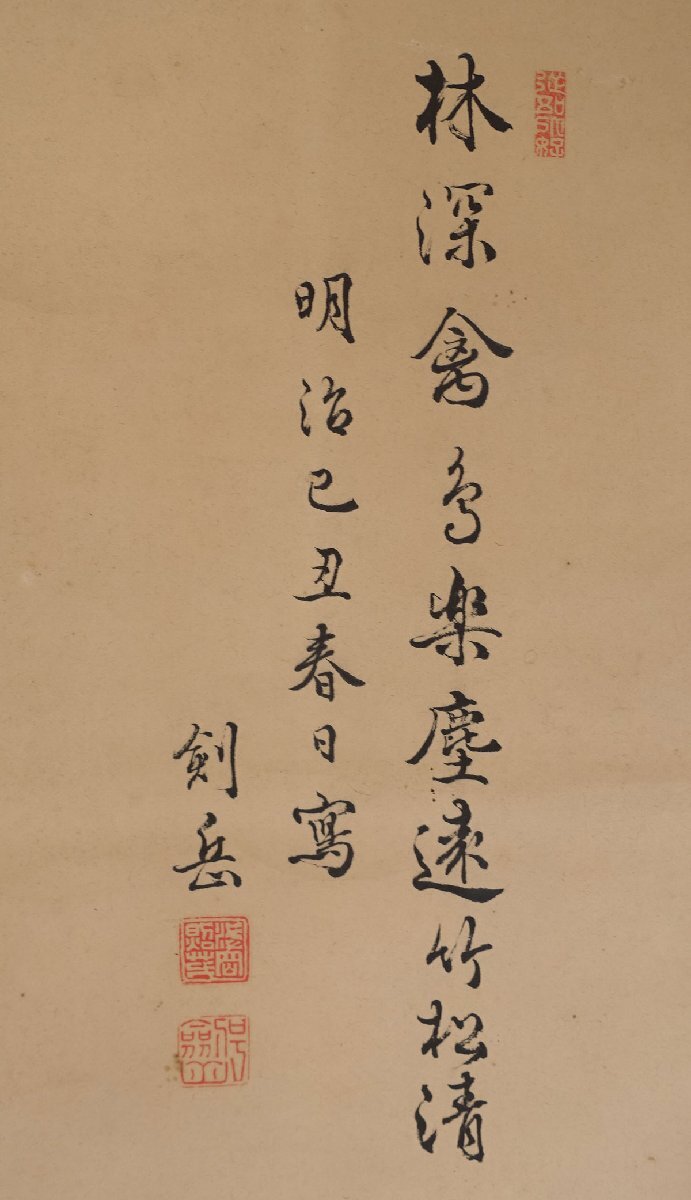 林深禽鳥楽塵遠竹松清
明治己丑春日寫
剣岳